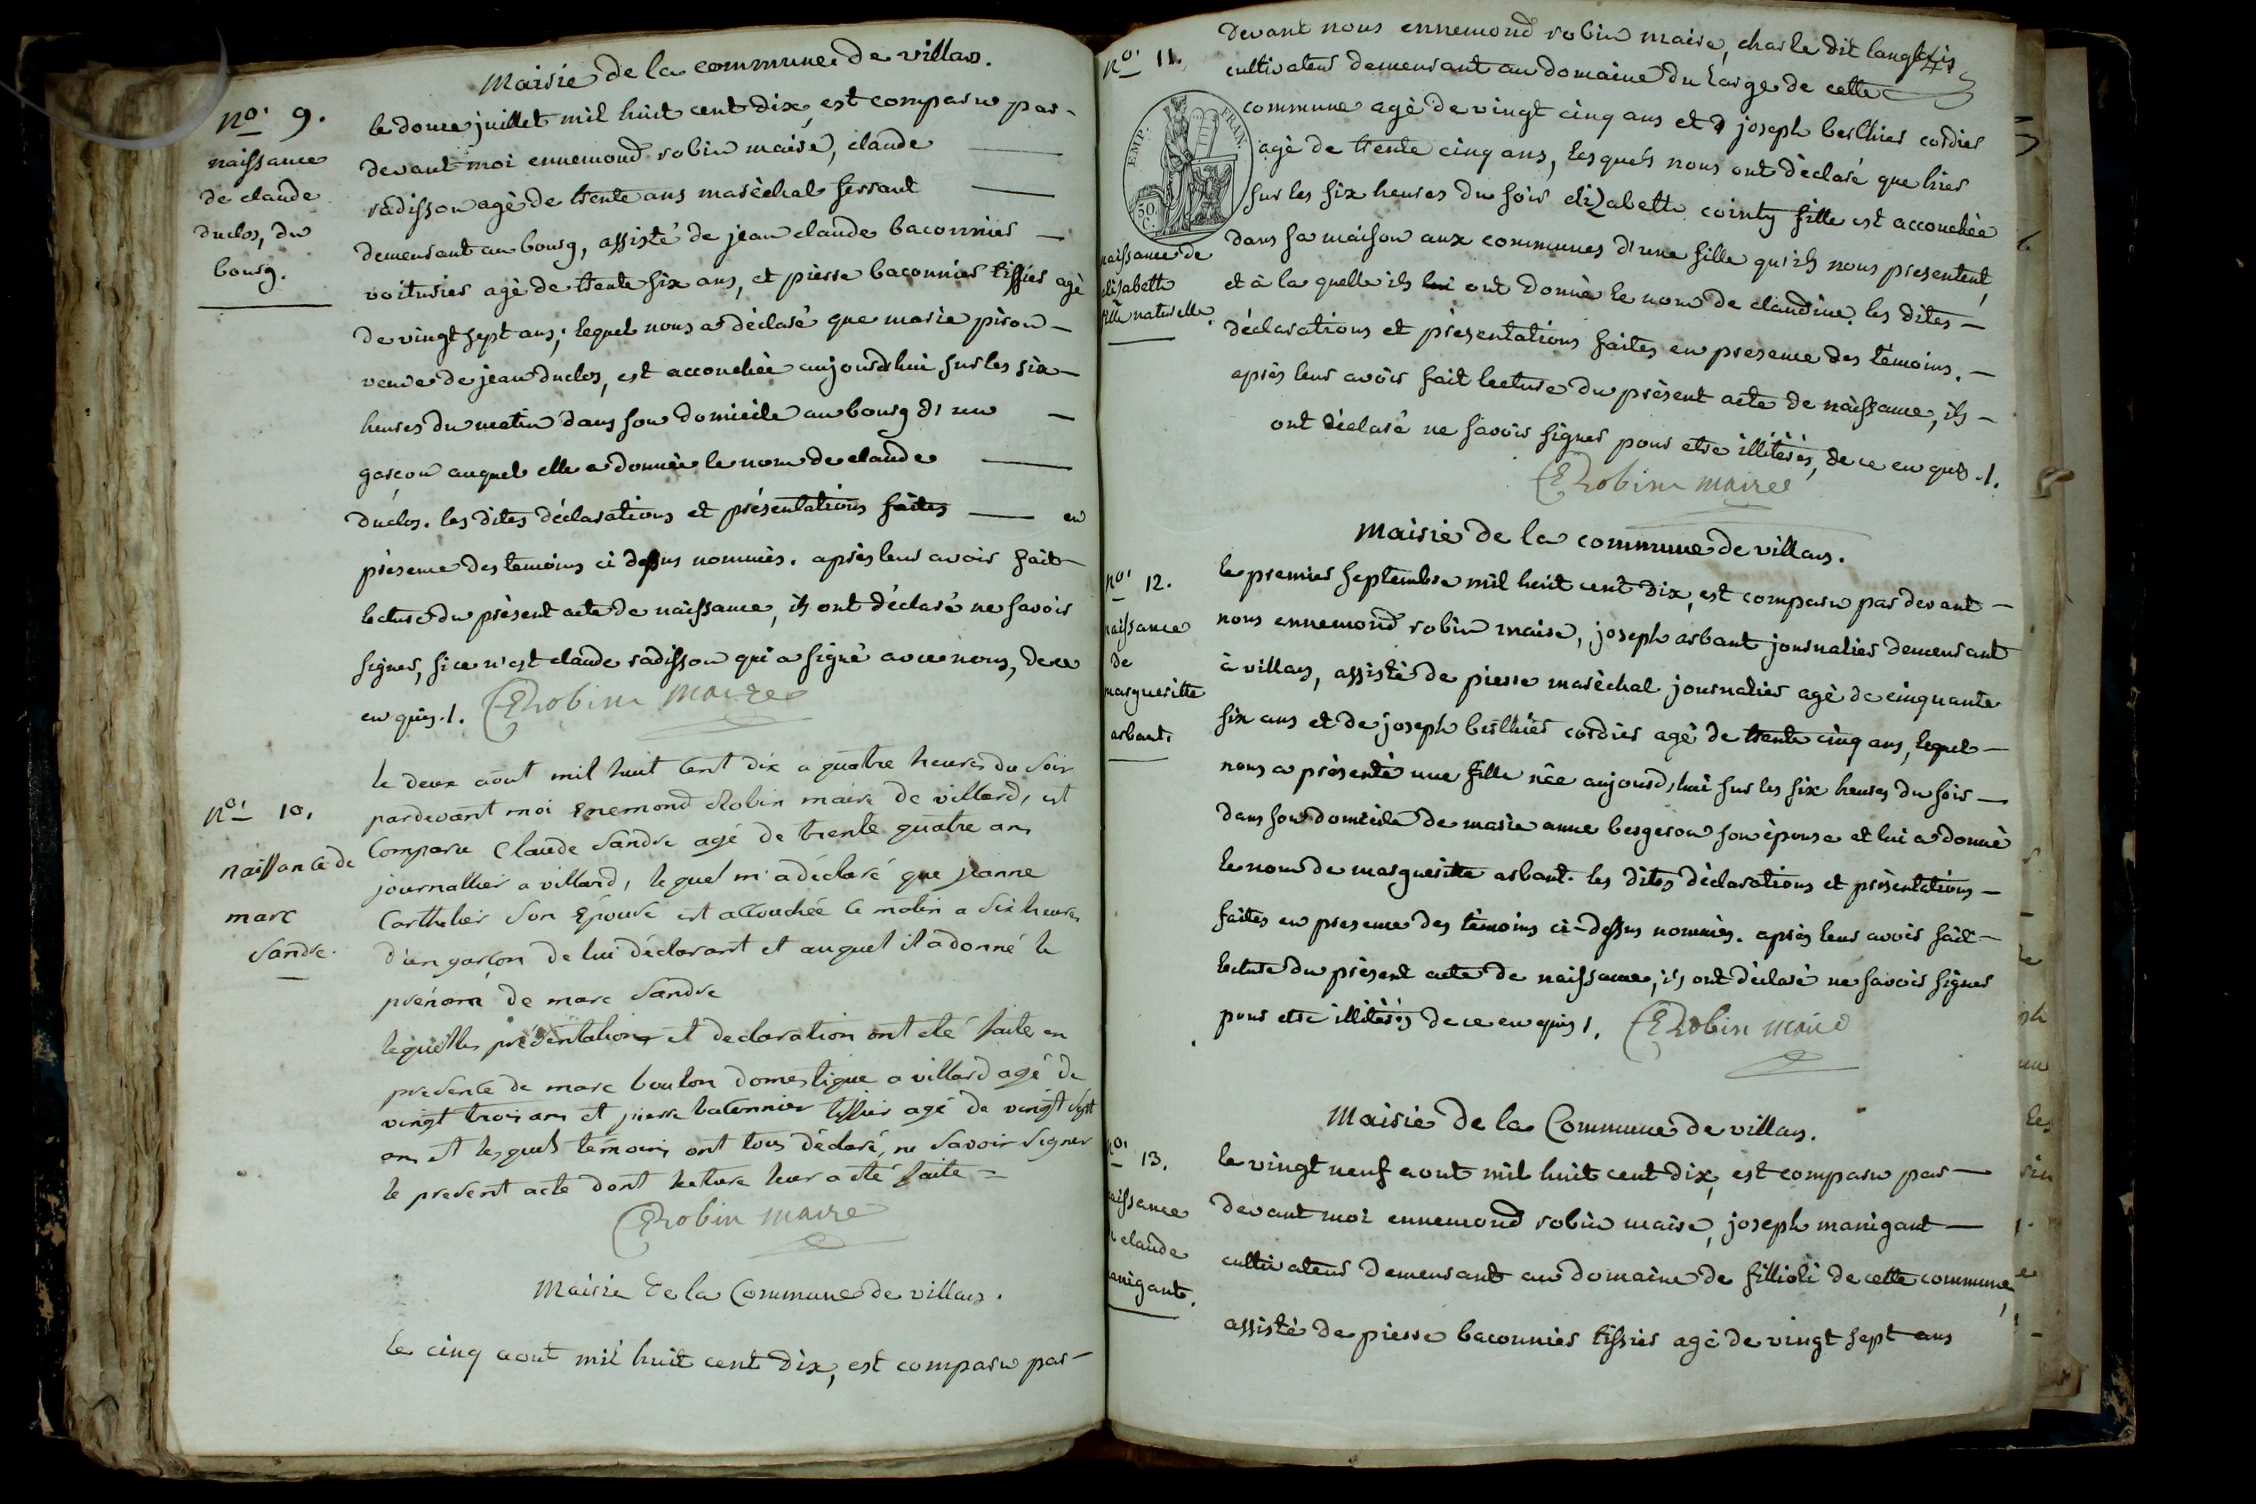 Mairie de la commune de villars.
no. 9.
naissance
de claude
duclos, du
bourg.
le douze juillet mil huit cent dix, est comparu par-
devant-moi ennemond robin maire, claude
radisson agè de trente ans maréchal ferrant
demeurant au bourg, assisté de jean claude baconnier
voiturier agè de trente six ans, et pierre baconnier tissier agè
de vingt sept ans; lequel nous a déclaré que marie piron
veuve de jean duclos, est accouchèe aujourdhui sur les six
heures du matin dans son domicile au bourg d'un
garçon auquel elle a donnèe le nom de claude
duclos. les dites déclarations et présentations faites en
prèsence des temoins ci dessus nommès. après leur avoir fait
lecture du prèsent acte de naissance, ils ont déclaré ne savoir
signer, si ce n'est claude radisson qui a signè avec nous, de ce
enquis ./. ERobin maire
no. 10.
naissance de
marc
Sandre.
le deux aout mil huit cent dix a quatre heures du soir
pardevant moi Enemond Robin maire de villard, est
Comparu Claude Sandre agé de trente quatre ans
journallier a villard, lequel m'a déclaré que jeanne
Carthelier Son Epouse est accouchée ce matin a Six heures
d'un garçon de lui déclarant et auquel il a donné le
prénom de marc Sandre
lequelles présentations et declaration ont eté faite en
presence de marc bouton domestique a villard agé de
vingt trois ans et pierre baconnier tissier agé de vingt Sept
ans et lesquels temoins ont tous déclaré, ne Savoir Signer
le present acte dont lecture leur a eté faite =
ERobin maire
Mairie de la Commune de villars.
le cinq aout mil huit cent dix, est comparu par-
no. 11.
EMP. FRAN.
50. C.
naissance de
elisabette
fille naturelle.
devant nous ennemond robin maire, charle dit langlois
cultivateur demeurant au domaine du large de cette
commune agè de vingt cinq ans et joseph berlhier cordier
agè de trente cinq ans, lesquels nous ont dèclaré que hier
sur les six heures du soir elizabette cointy fille est accouchèe
dans sa maison aux communes d'une fille qu'ils nous presentent,
et à la quelle ils lui ont donnè le nom de claudine. les dites
déclarations et prèsentations faites en presence des tèmoins.
après leur avoir fait lecture du prèsent acte de naissance, ils
ont dèclaré ne savoir signer pour etre illitèrès, de ce enquis ./.
ERobin maire
Mairie de la commune de villars.
no. 12.
naissance
de
margueritte
arbant.
le premier septembre mil huit cent dix, est comparu par devant
nous ennemond robin maire, joseph arbant journalier demeurant
à villars, assistè de pierre maréchal journalier agè de cinquante
six ans et de joseph berlhier cordier agè de trente cinq ans, lequel
nous a prèsentè une fille nèe aujourd'hui sur les six heures du soir
dans son domicile de marie anne bergeron son èpouse et lui a donnè
le nom de margueritte arbant. les dites déclarations et prèsentations
faites en presence des tèmoins ci-dessus nommès. après leur avoir fait
lecture du prèsent acte de naissance, ils ont déclaré ne savoir signer
pour etre illitèrès de ce enquis /. ERobin maire
Mairie de la Commune de villars.
no. 13.
naissance
claude
manigant.
le vingt neuf aout mil huit cent dix, est comparu par
devant moi ennemond robin maire, joseph manigant
cultivateur demeurant au domaine de fillioli de cette commune,
assistè de pierre baconnier tissier agè de vingt sept ans